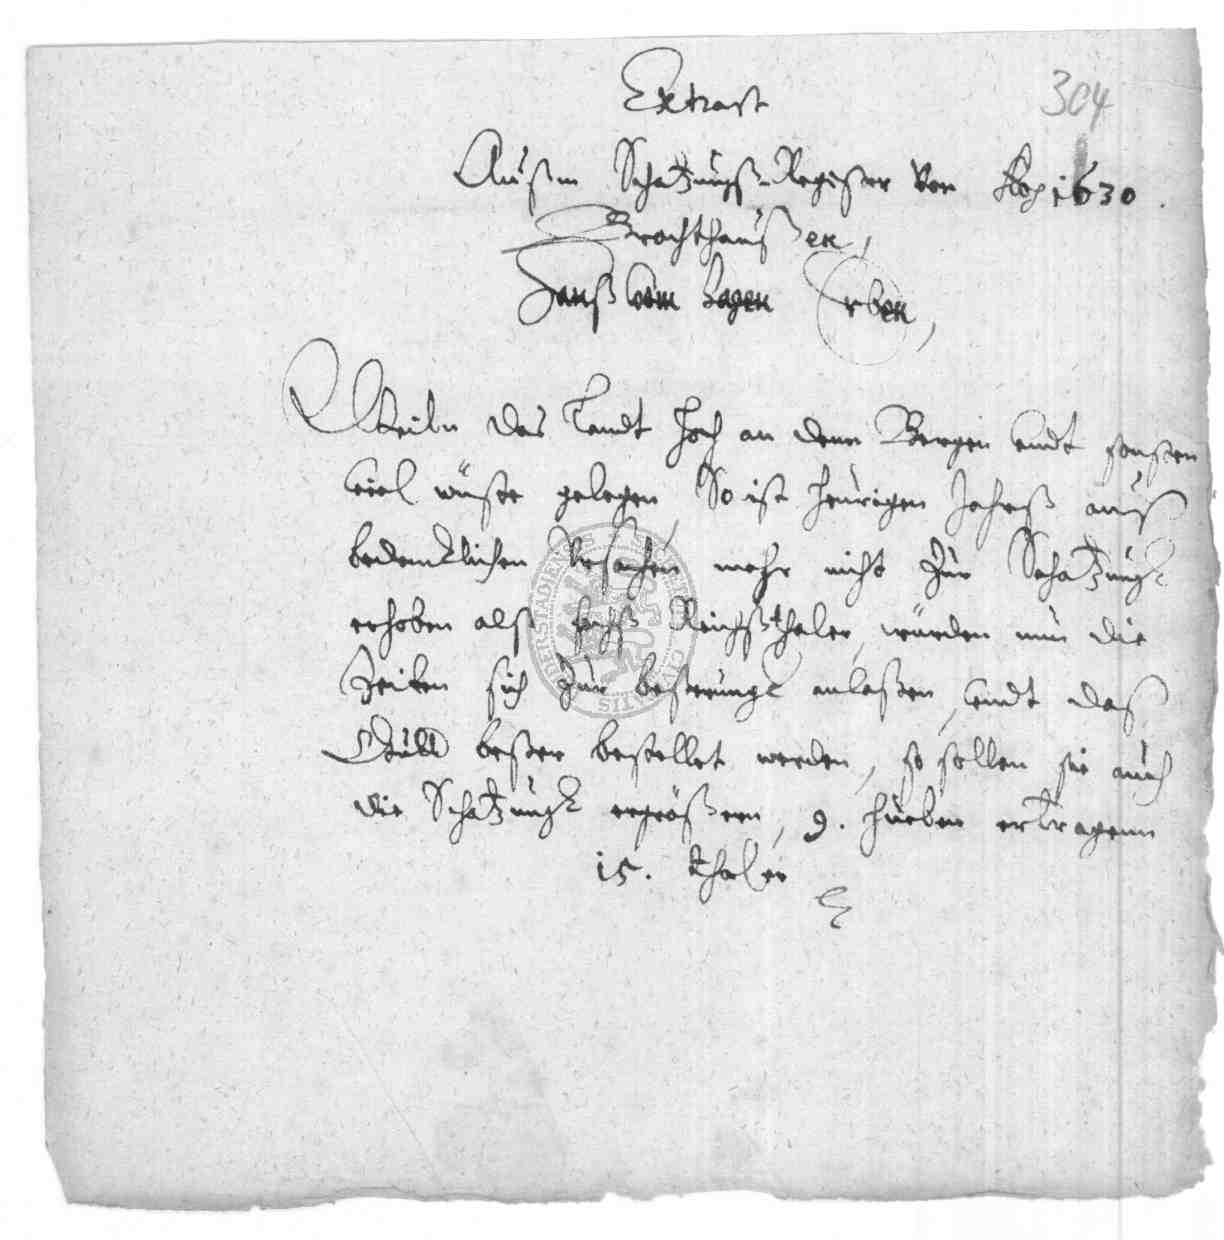 Extract
304
Außm Schatzungß-Register von 1630.
Brochthaußen,
Hanß vom Hagen Erben,
Weiln das Landt hoch an denn Bergen undt sonsten
viel wüste gelegen So ist heurigen Jahrß auß
bedencklichen Ursachen mehr nicht zur Schatzung
erhoben alß sechß Reichßthaler, würden nun die
Zeiten sich zur besserung anlaßen, undt das
beßer bestellet werden, so sollen sie auch
die Schatzung ergrößern, 9. Hueben ertragenn
15. thaler